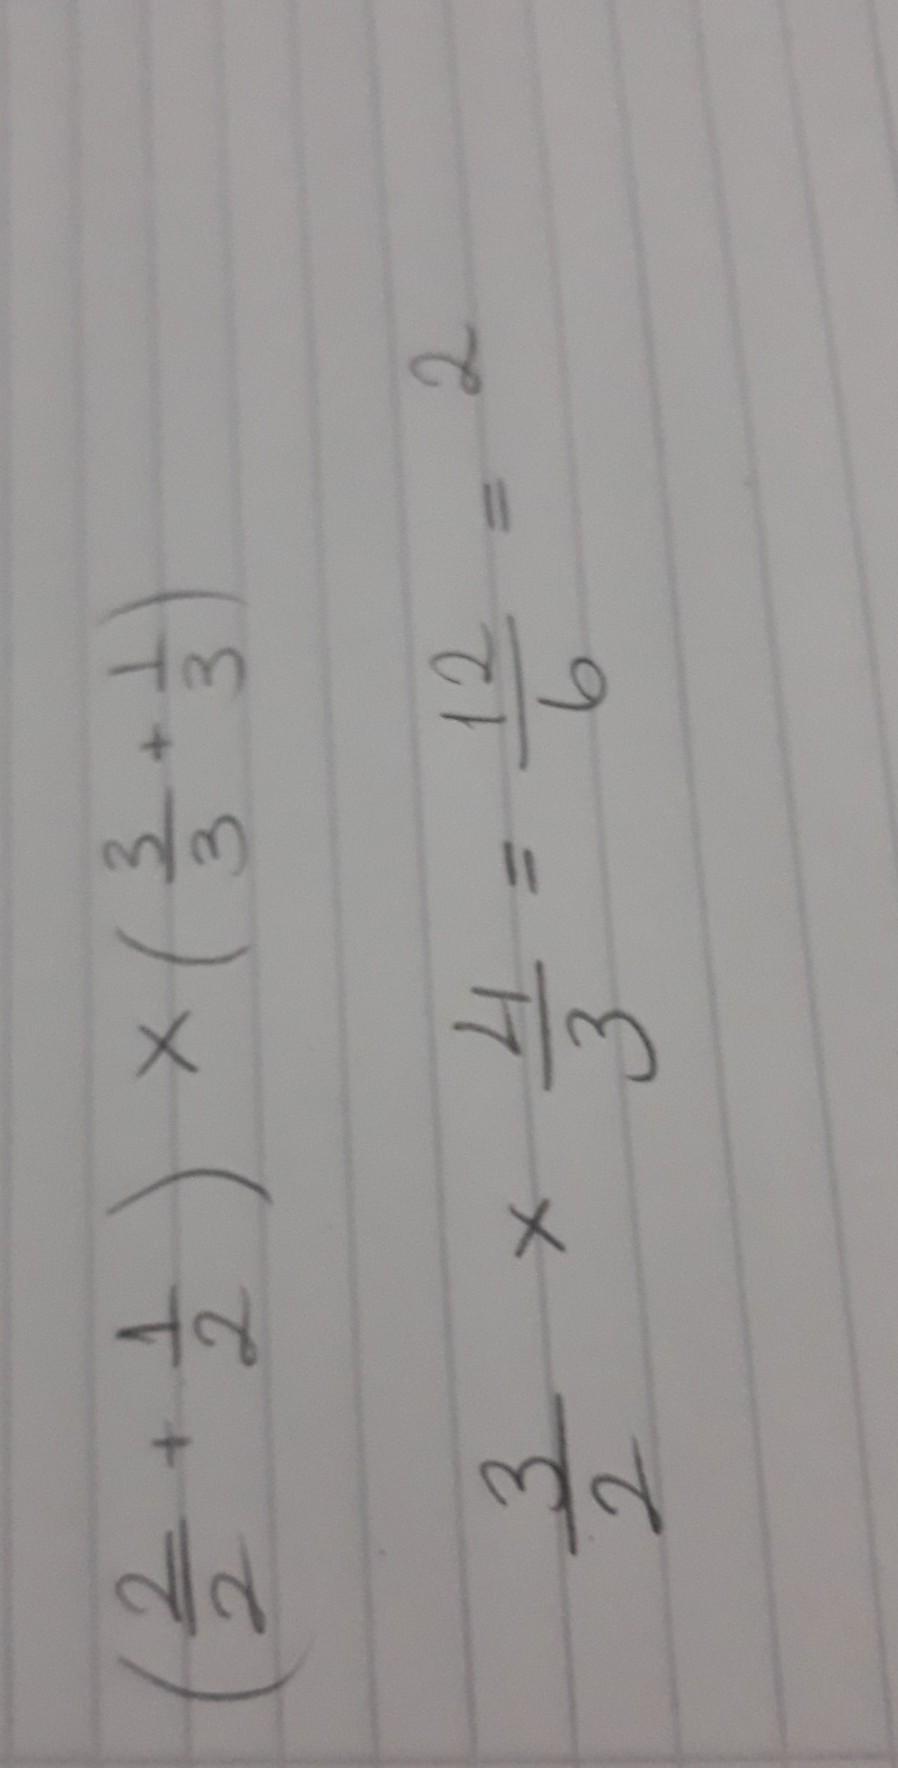 (2/2 + 1/2) × (3/3 + 1/3)
3/2 × 4/3 = 12/6 = 2